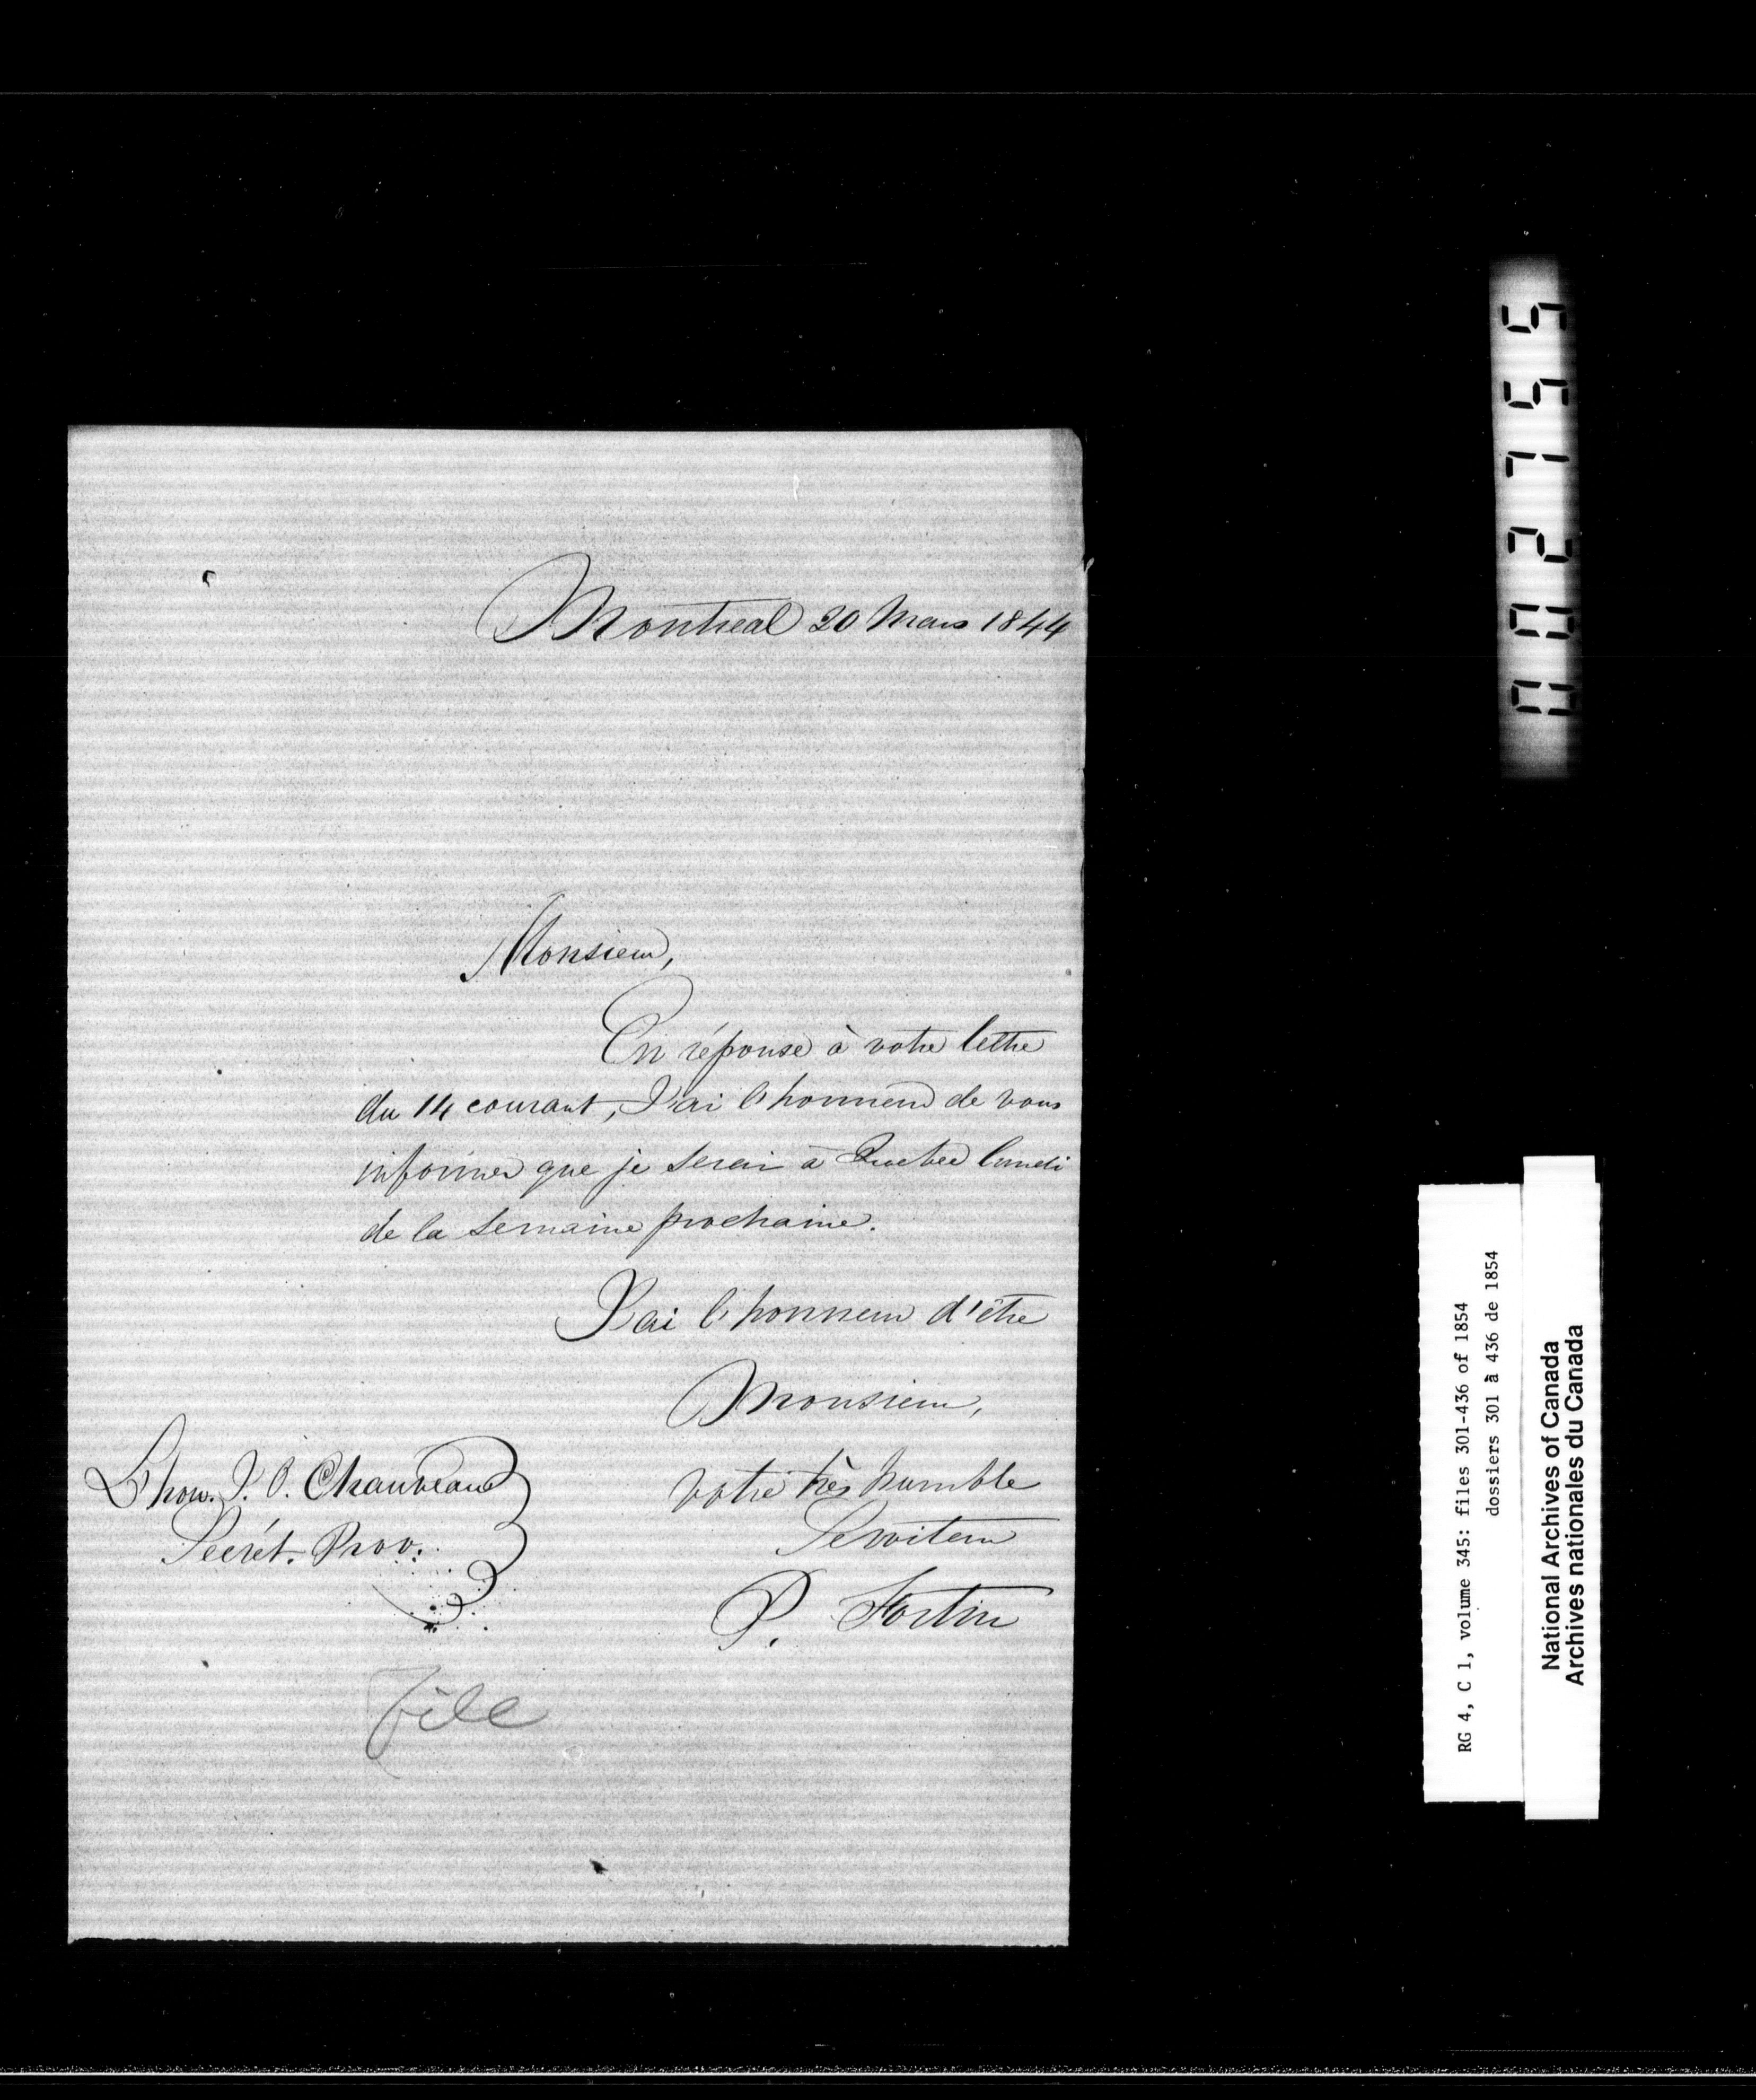 Montreal 20 Mars 1844
Monsieur,
En réponse à votre lettre
du 14 courant, J'ai l'honneur de vous
informer que je serai à Quebec lundi
de la semaine prochaine.
J'ai l'honneur d'être
Monsieur,
votre très humble
Serviteur
P. Fortin
L'hon. P. O. Chauveau
Secrét. Prov.
File
002755
RG 4, C 1, volume 345: files 301-436 of 1854
dossiers 301 à 436 de 1854
National Archives of Canada
Archives nationales du Canada